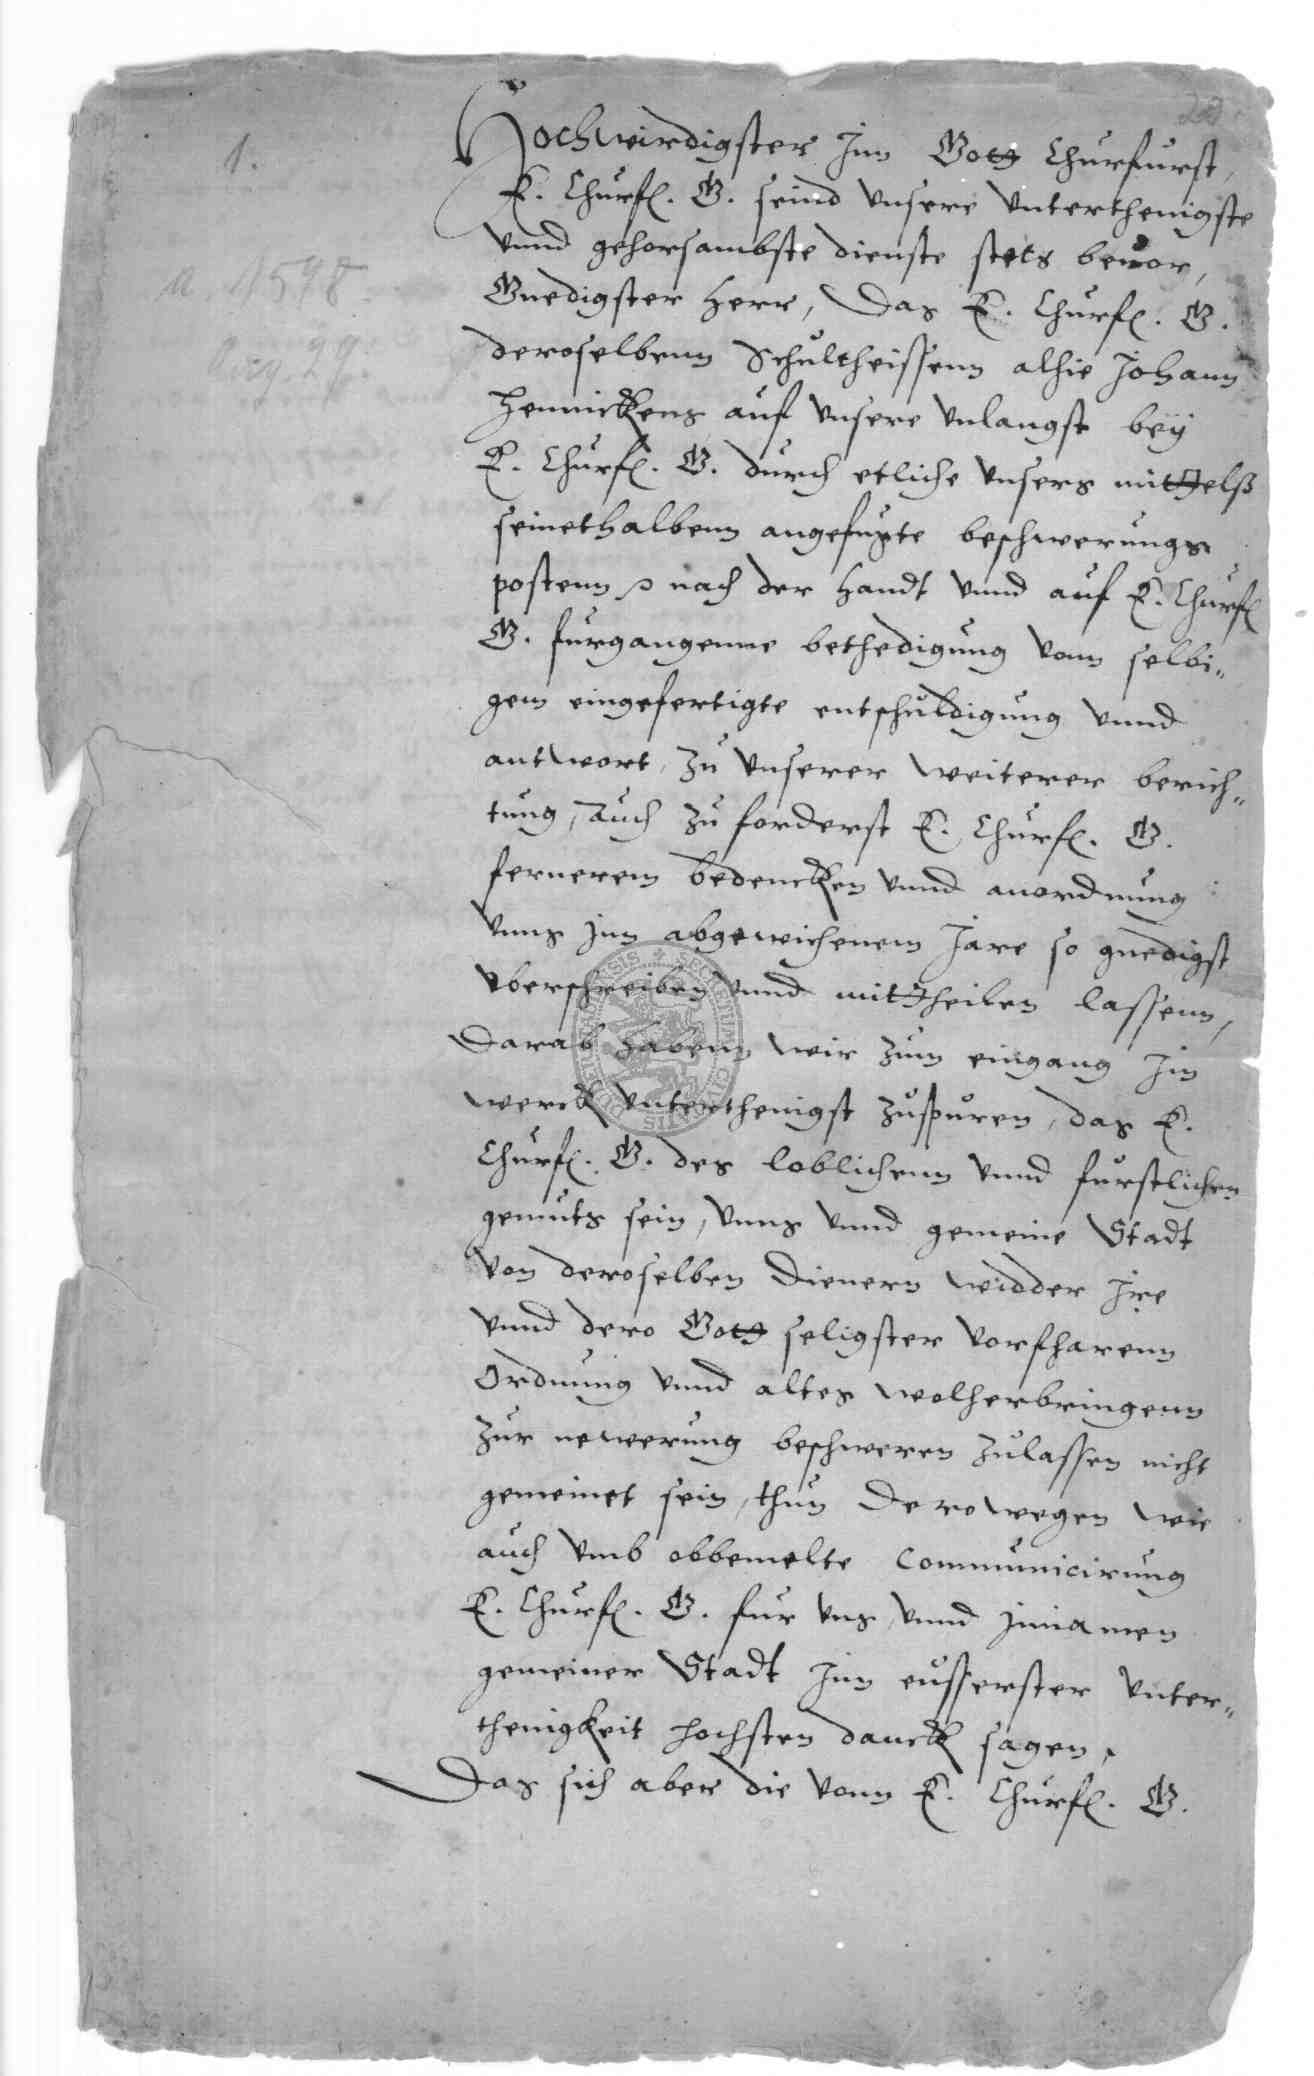 22
1.
a. 1598
Aug. 29.
Hochwirdigster Inn Gott Churfurst,
E. Churf. G. seind Unsere Unterthenigste
Unnd gehorsambste dienste stets beuor,
Gnedigster Herr, Das E. Churf. G.
deroselbenn Schultheissenn alhie Johann
Hennickens auf Unsere Unlangst bey
E. Churf. G. durch etliche Unsers mittelß
seinethalbenn angefugte beschwerungs
postenn nach der Handt Unnd auf E. Churf
G. furgangenne bethedigung Vonn selbi„
gem eingefertigte entschuldigung Unnd
antwort, zu Unserer weiterer berich„
tung, Auch zu forderst E. Churf. G.
fernerem bedencken Unnd anordnung
Unns Inn abgewichenem Jare so gnedigst
Uberschreiben Unnd mittheilen lassenn,
Darab habenn wir zum eingang Im
werck Unterthenigst zuspuren, das E.
Churf. G. des loblichenn Unnd furstlichen
gemuts sein, Unns Unnd gemeine Stadt
Von deroselben Dienern widder Ire
Unnd dero Gott seligster Vorfharenn
Ordnung Unnd altes wolherbringenn
zur newerung beschweren zulassen nicht
gemeinet sein, thun Derowegen wie
auch Umb obbemelte Communicirung
E. Churf. G. fur Uns, Unnd Imnamen
gemeiner Stadt Inn eusserster Unter„
thenigkeit hochsten danck sagen,
Das sich aber die Vonn E. Churf. G.